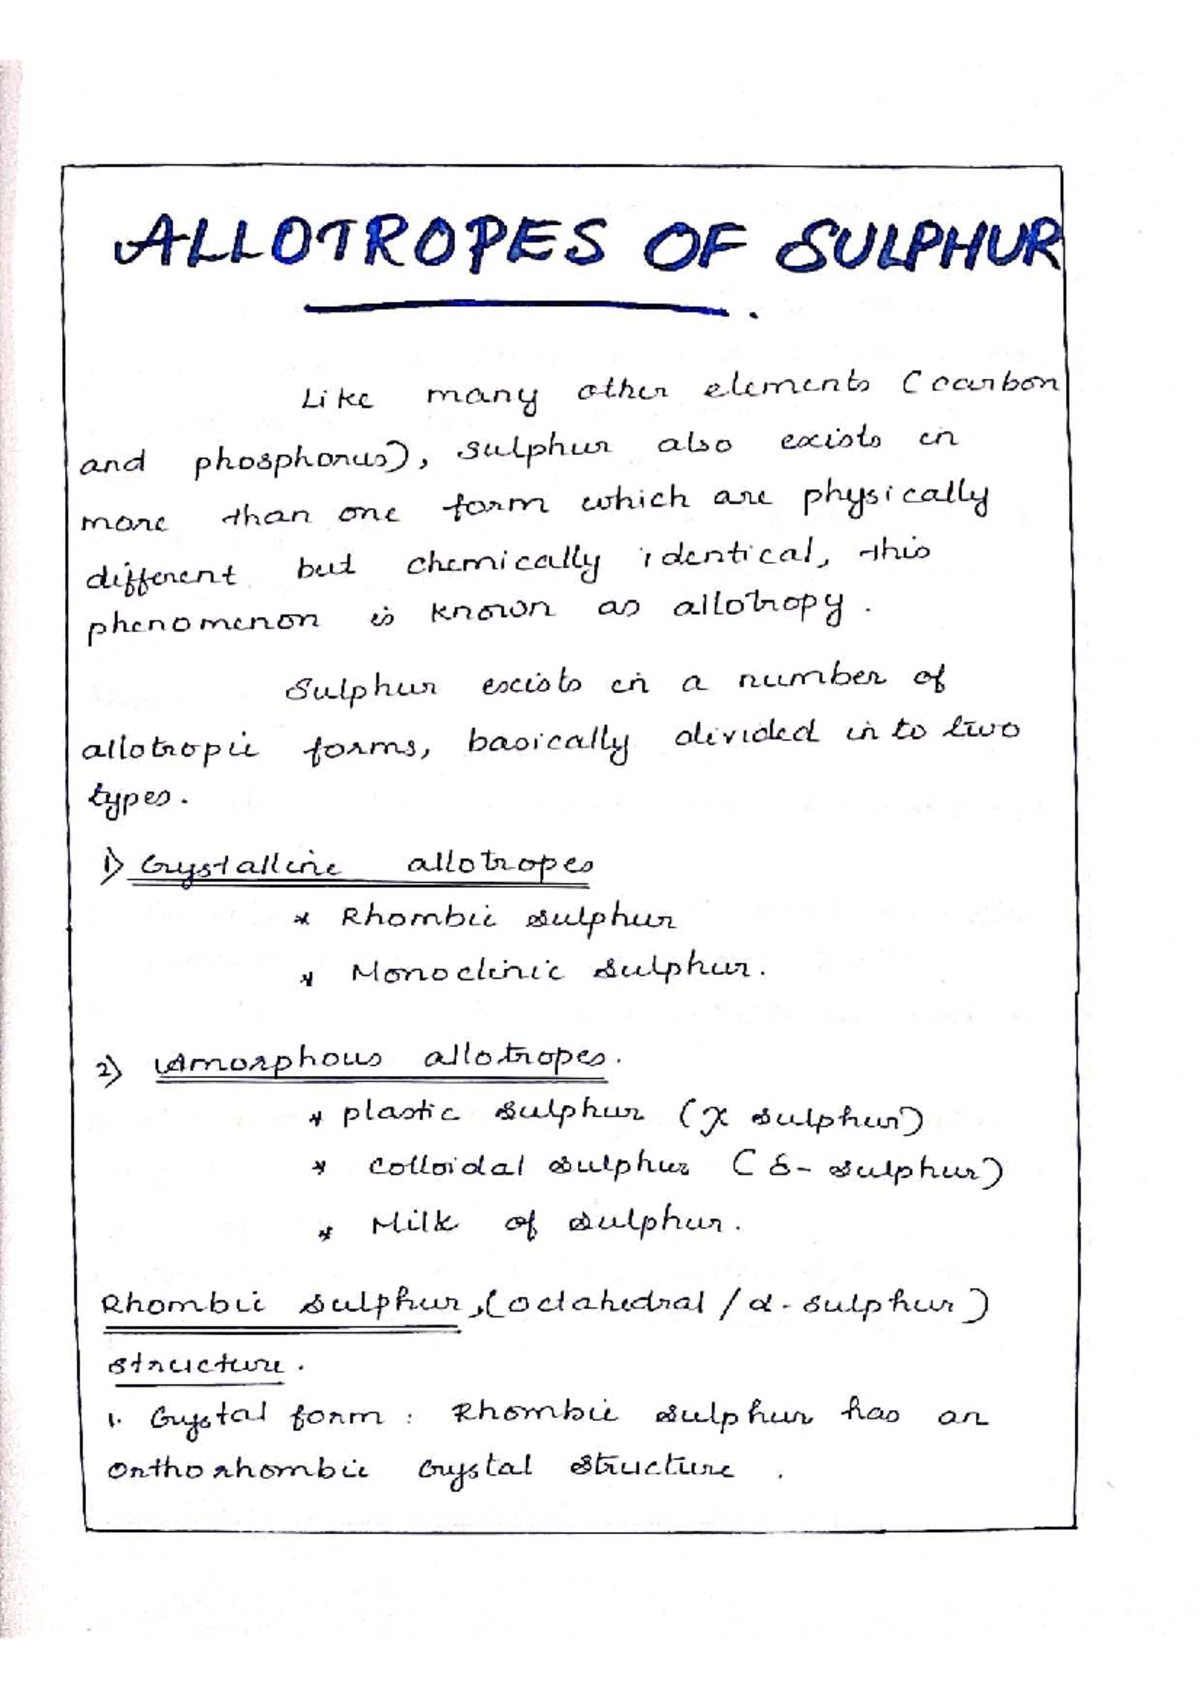 ALLOTROPES OF SULPHUR
Like many other elements (carbon
and phosphorus), sulphur also exists in
more than one form which are physically
different but chemically identical, this
phenomenon is known as allotropy.
Sulphur exists in a number of
allotropic forms, basically divided in to two
types.
1) Crystalline allotropes
* Rhombic sulphur
* Monoclinic sulphur.
2) Amorphous allotropes.
* plastic sulphur (χ sulphur)
* colloidal sulphur (δ- sulphur)
* Milk of sulphur.
Rhombic sulphur, (octahedral / α- sulphur)
structure.
1. Crystal form : Rhombic sulphur has an
Orthorhombic crystal structure .